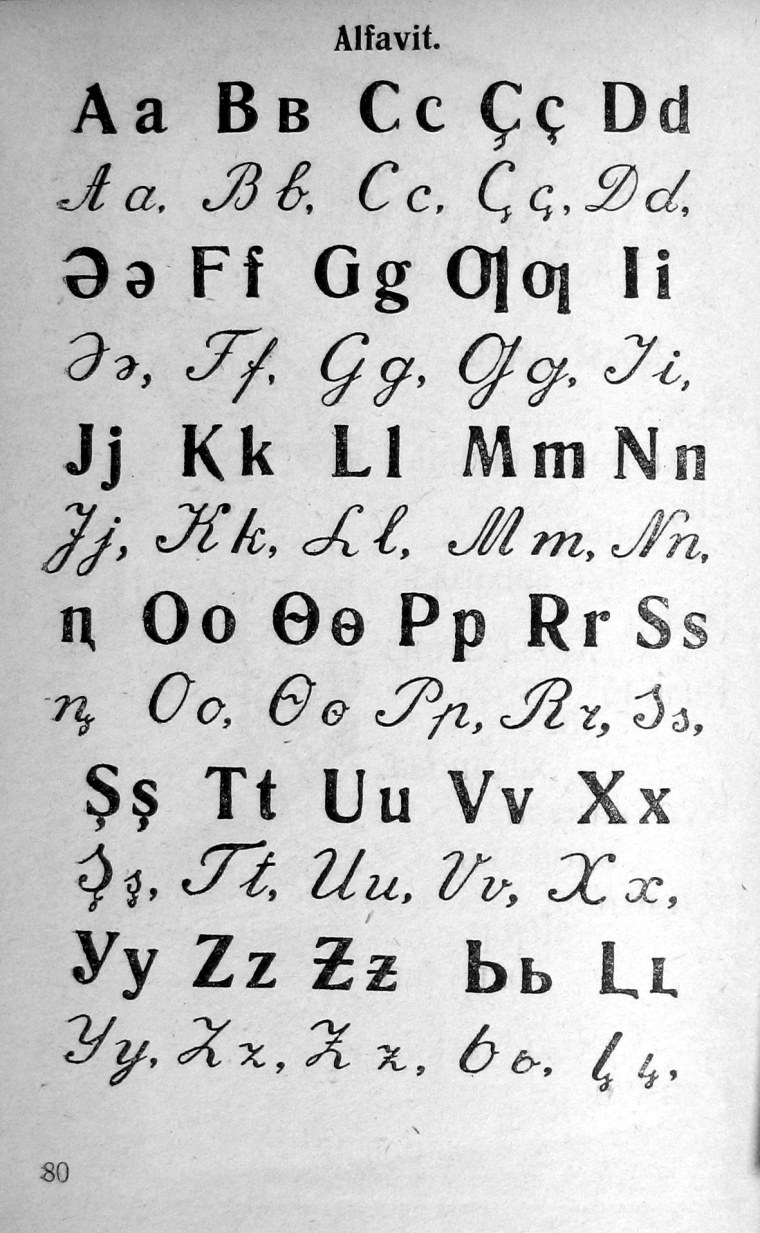 Alfavit.
A a B ʙ C c Ç ç D d
A a, B b, C c, Ç ç, D d,
Ə ə F f G g Ƣ ƣ I i
Ə ə, F f, G g, Ƣ ƣ, I i,
J j K k L l M m N n
J j, K k, L l, M m, N n,
ꞑ O o Ɵ ɵ P p R r S s
ꞑ O o, Ɵ ɵ P p, R r, S s,
Ş ş T t U u V v X x
Ş ş, T t, U u, V v, X x,
Y y Z z Ƶ ƶ Ь ь Į į
Y y, Z z, Ƶ ƶ, Ь ь, Į į,
80